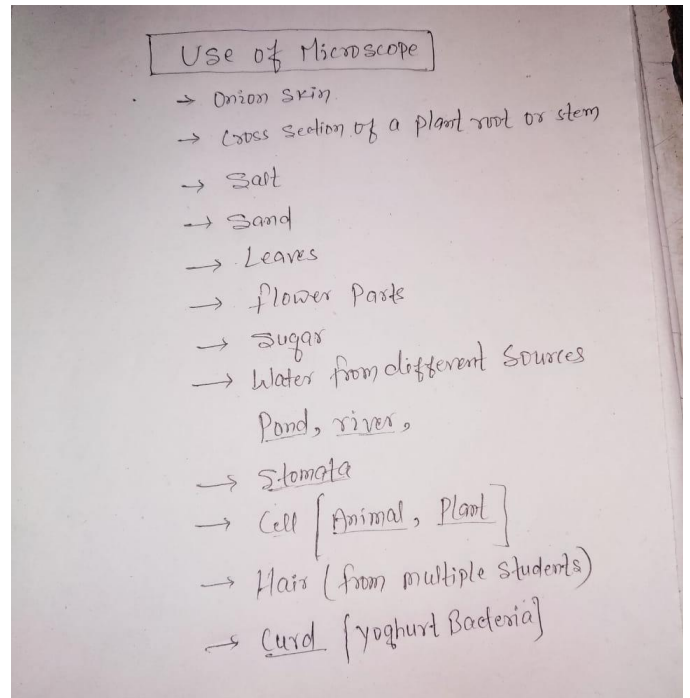 Use of Microscope
→ Onion Skin
→ Cross Section of a plant root or stem
→ Salt
→ Sand
→ Leaves
→ flower Parts
→ Sugar
→ Water from different Sources
Pond, river,
→ Stomata
→ Cell [Animal, Plant]
→ Hair (from multiple Students)
→ Curd [yoghurt Bacteria]